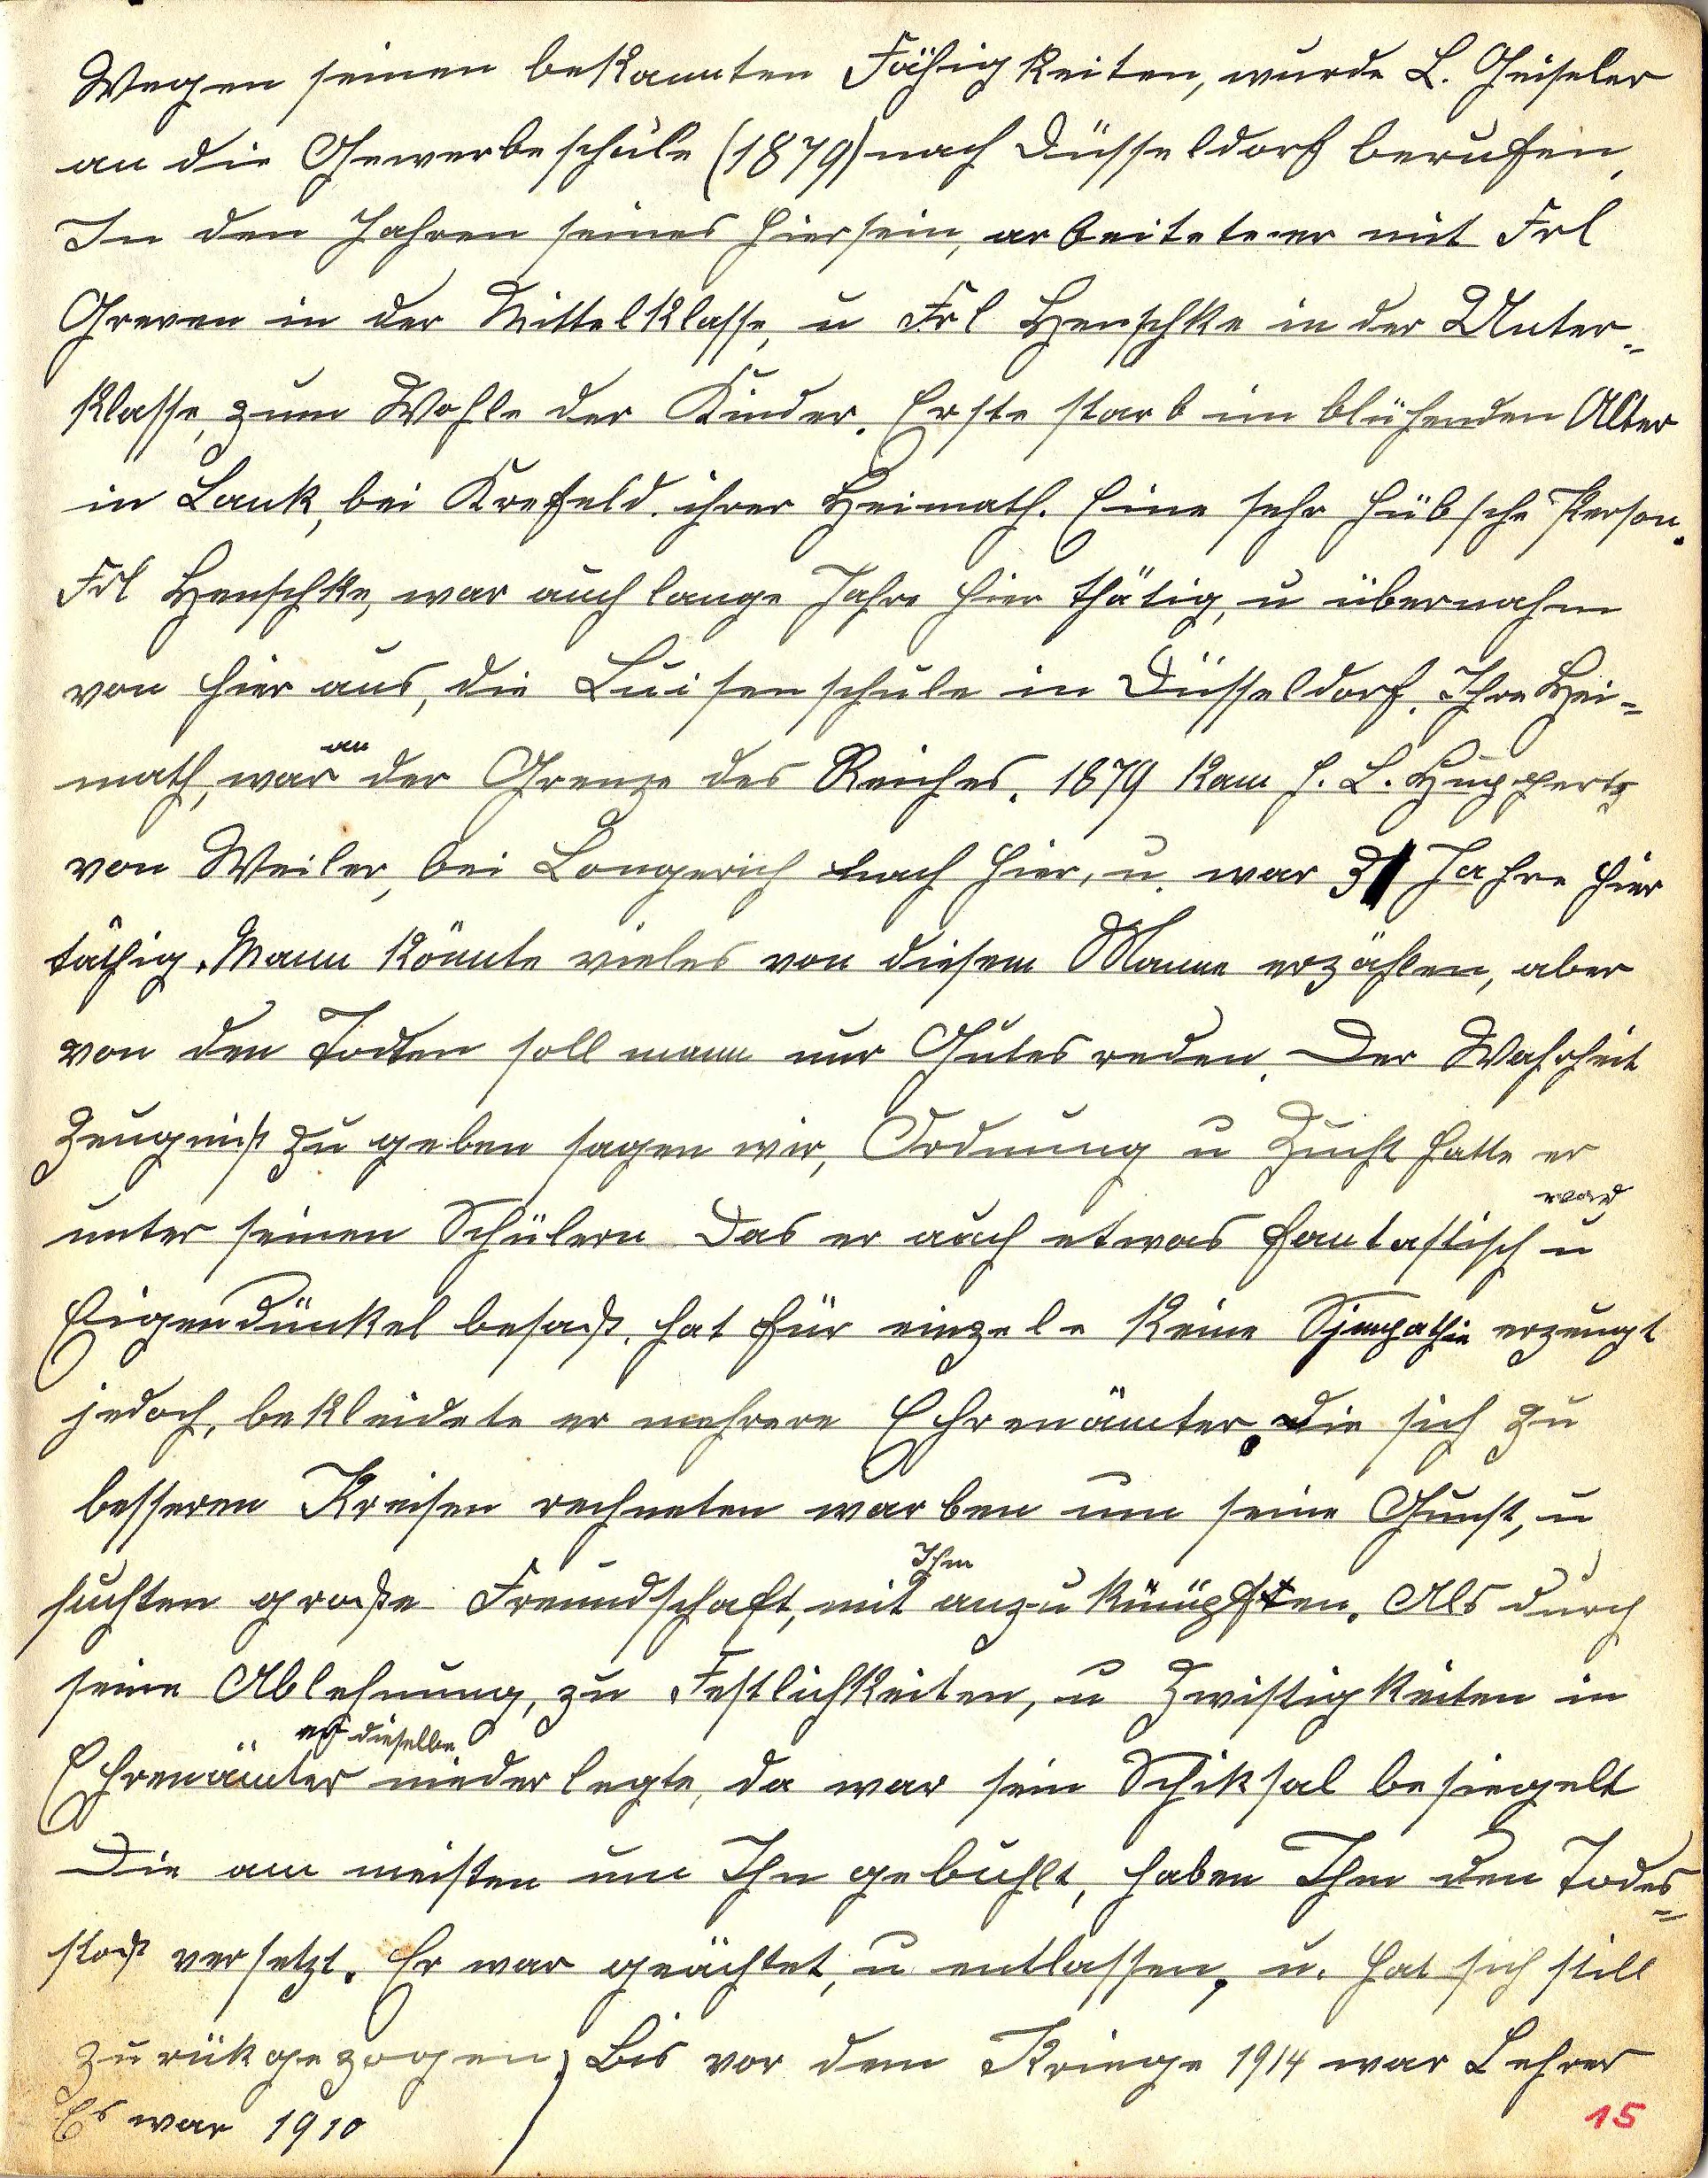 Wegen seinen bekannten Fähigkeiten, wurde L. Geiseler
an die Gewerbeschule (1879) nach Düsseldorf berufen.
In den Jahren seines Hiersein, arbeitete er mit Frl
Greven in der Mittelklasse, u Frl Henschke in der Unter=
klasse, zum Wohle der Kinder. Erste starb im blühenden Alter
in Lank, bei Krefeld. ihrer Heimath. Eine sehr hübsche Person.
Frl Henschke, war auch lange Jahre hier thätig, u übernahm
von hier aus, die Luisenschule in Düsseldorf. Ihre Hei=
math, war an der Grenze des Reiches. 1879 kam H. L. Huppertz
von Weiler, bei Longerich nach hier, u. war 31 Jahre hier
täthig. Mann könnte vieles von diesem Manne erzählen, aber
von den Todten soll mann nur Gutes reden. Der Wahrheit
Zeugniß zu geben sagen wir, Ordnung u Zucht hatte er
unter seinen Schülern Das er auch etwas fantastisch war u
Eigendünkel besaß. hat für einzele keine Sjmpathie erzeugt
jedoch, bekleidete er mehrere Ehrenämter. die sich zu
besseren Kreisen rechneten warben um seine Gunst, u
suchten große Freundschaft, mit Ihm anzuknüpften. Als durch
seine Ablehnung, zu Festlichkeiten, u Zwistigkeiten in
Ehrenämter er dieselbe niederlegte, da war sein Schiksal besiegelt
Die am meisten um Ihn gebuhlt, haben Ihm den Todes=
stoß versetzt. Er war geächtet, u entlassen, u. hat sich still
zurükgezogen; Bis vor dem Kriege 1914 war Lehrer
Es war 1910
15